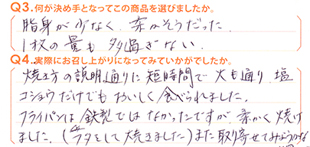 Q3.何が決め手となってこの商品を選びましたか。
脂身が少なく、赤がそうだった
1枚の量も多過ぎない。
Q4.実際にお召し上がりになってみていかがでしたか。
焼き方の説明通りに短時間で火も通り、塩
コショウだけでもおいしく食べられました。
フライパンは鉄製ではなかったですが、赤かく焼け
ました。(フタをして焼きました)また取寄せてみようかな